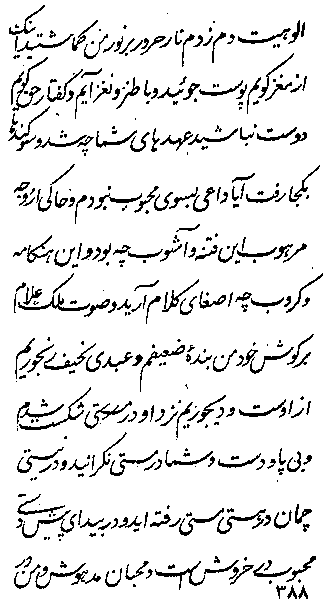 الوهیت دم زدم نار حرور بر نور من کماشتید اینک
از مغز کویم پوست جوئید و با طنز و نغز آیم و کفتار حق کویم
دوست نباشید عهدهای شما چه شد و سوکندها
بکجا رفت آیا داعی بسوی محبوب نبودم و حاکی از وجه
مرهوب این فتنه و آشوب چه بود و این هنکامه
و کروب چه اصغای کلام آرید و صوت ملک علام
بر کوش خود من بندهٔ ضعیفم و عبدی نحیف رنجوریم
از اوست و دیجوریم نزد او در مستی شکسته شدم
و بی پا و دست و شما در مستی نکرانید و در نیستی
چمان در هستی مستی رفته اید و در بیدای پیش دستی
محبوب در خروش است و محبان مدهوش و من در
۳۸۸